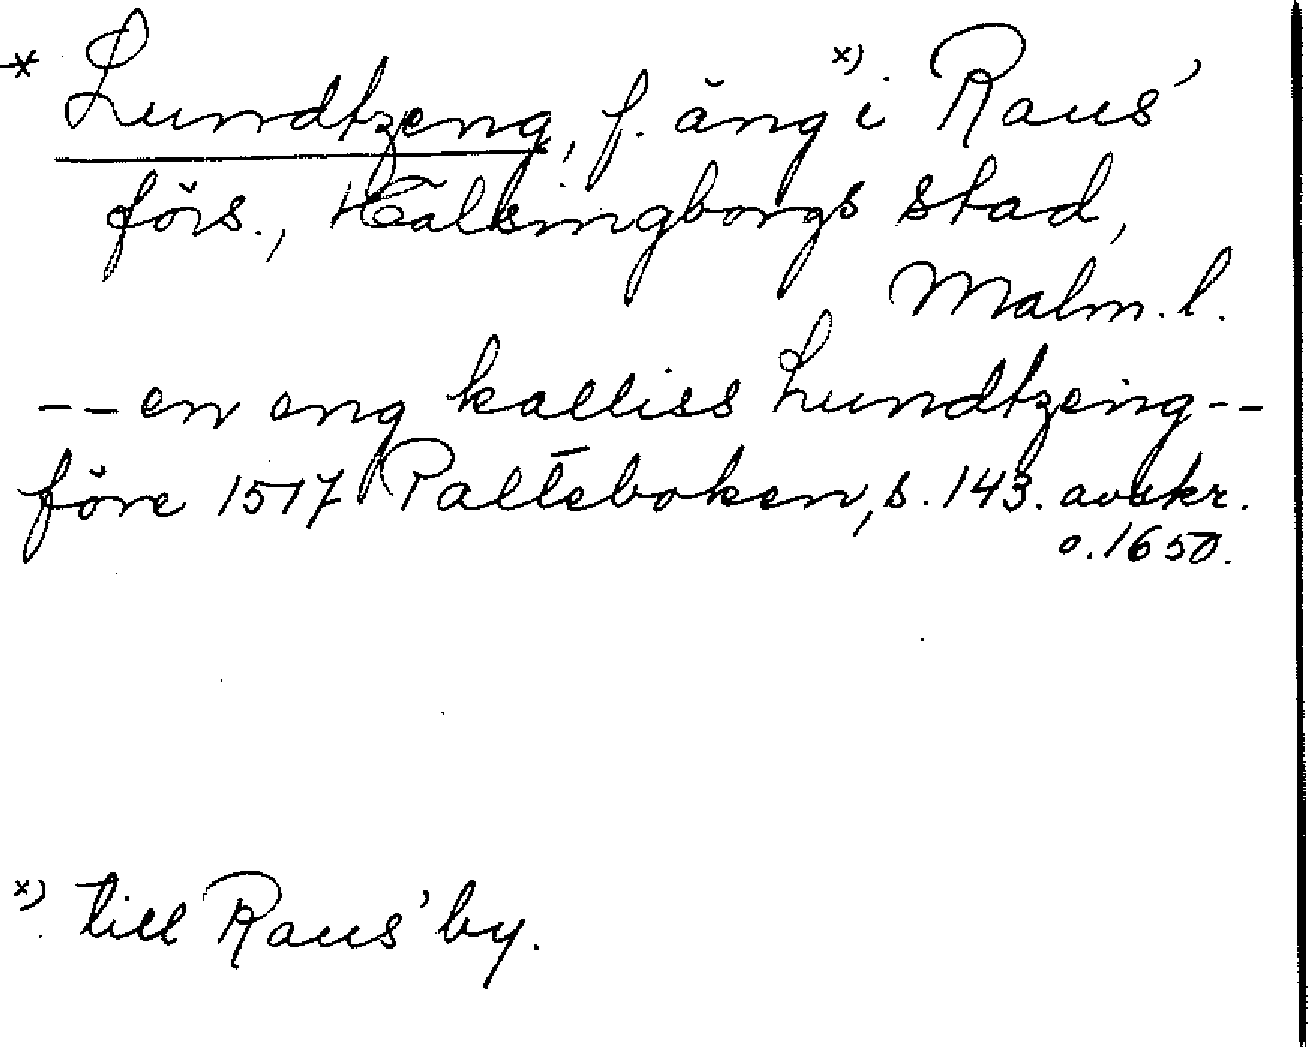 * Lundtzeng, f. äng x) i Raus'
förs., Hälsingborgs stad,
Malm. l.
-- en eng kalliss Lundtzeing --
före 1517 Palteboken, s. 143. avskr.
o. 1650.
x) till Raus' by.